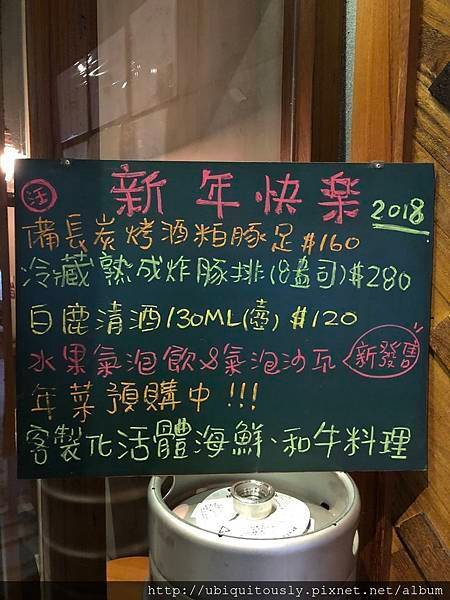 活 新年快樂 2018
備長炭烤酒粕豚足$160
冷藏熟成炸豚排(8盎司)$280
白鹿清酒130ML(壺) $120
水果氣泡飲&氣泡沙瓦 新發售
年菜預購中!!!
客製化活體海鮮、和牛料理
http://ubiquitously.pixnet.net/album